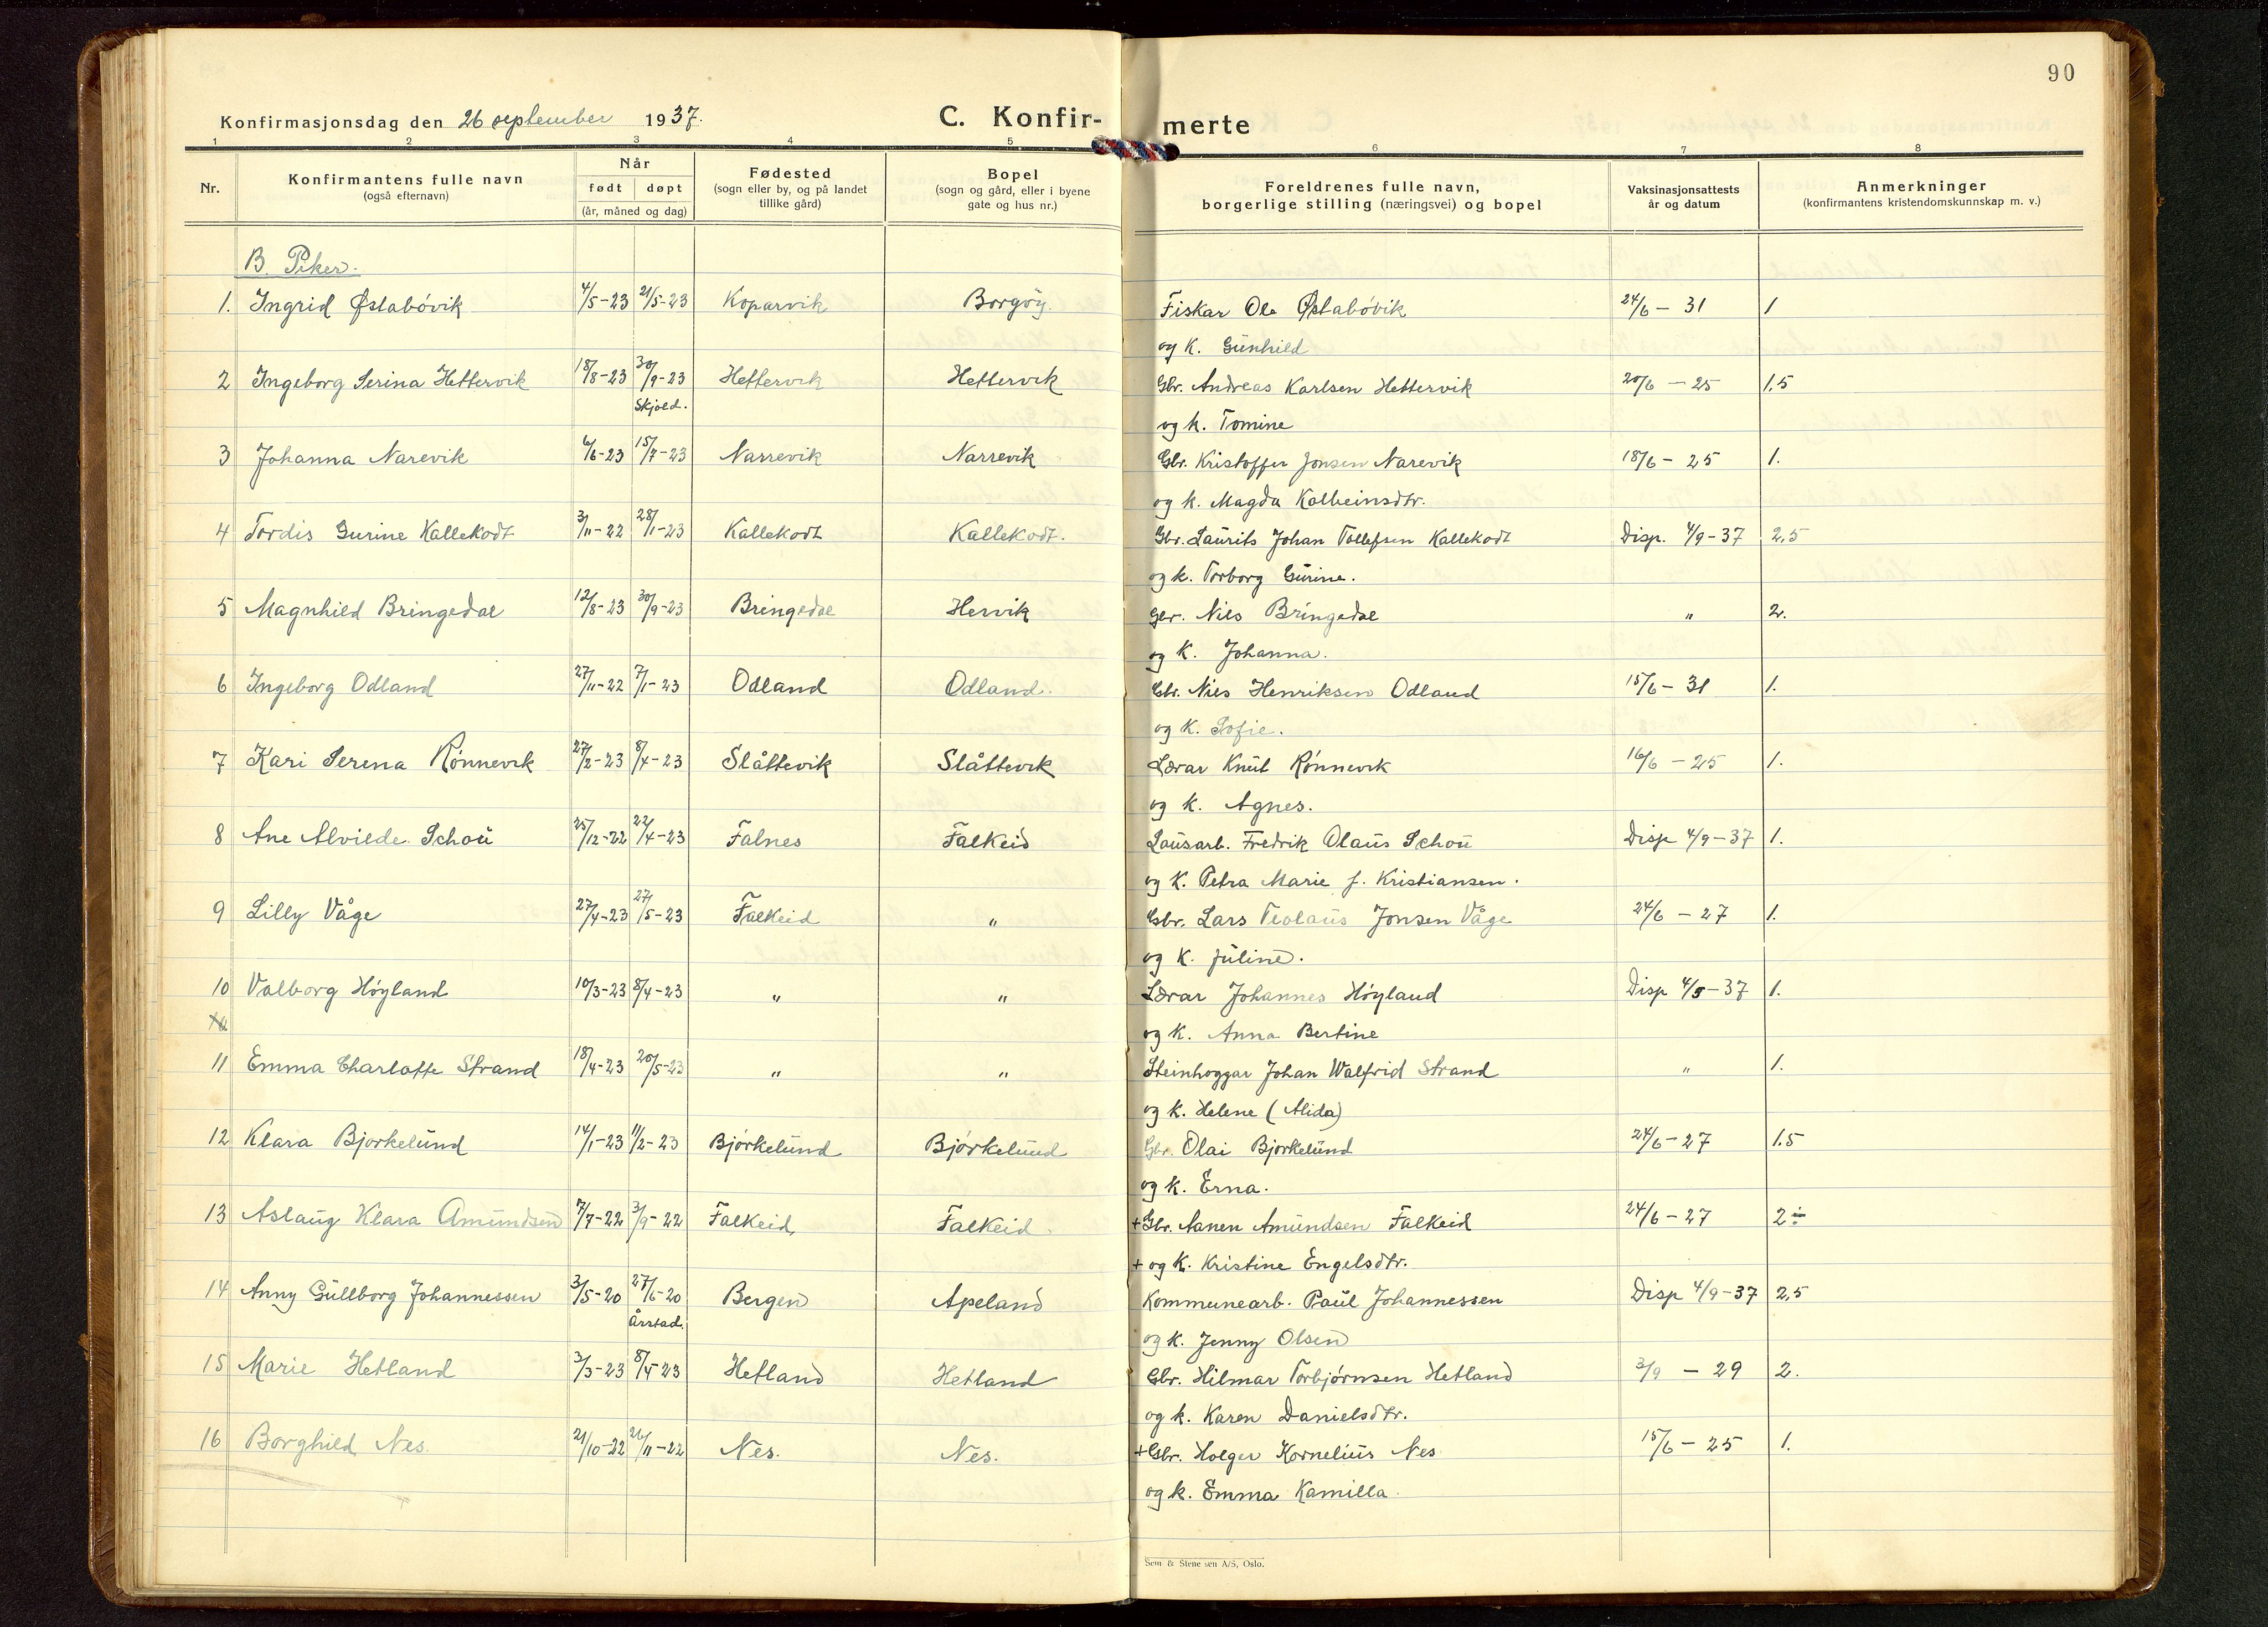 90
Konfirmasjonsdag den 26 september 1937.
C. Konfir- merte
1 2 3 4 5 6 7 8
Nr.
Konfirmantens fulle navn
(også efternavn)
Når
født døpt
(år, måned og dag)
Fødested
(sogn eller by, og på landet
tillike gård)
Bopel
(sogn og gård, eller i byene
gate og hus nr.)
Foreldrenes fulle navn,
borgerlige stilling (næringsvei) og bopel
Vaksinasjonsattests
år og datum
Anmerkninger
(konfirmantens kristendomskunnskap m. v.)
B. Piker.
1. Ingrid Østabóvik 4/5-23 21/5-23 Koparvik Borgóy. Fiskar Ole Østabóvik 24/6 - 31 1
og K. Gunhild
2 Ingeborg Serina Hettervik 18/8-23 30/9-23 Hettervik Hettervik Gbr. Andreas Karlsen Hettervik 20/6 - 25 1.5
Skjold. og k. Tomine
3 Johanna Narevik 6/6-23 15/7-23 Narrevik Narrevik Gbr. Kristoffer Jonsen Narevik 18/6 - 25 1.
og k. Magda Kolbeinsdtr.
4 Tordis Gurine Kallekodt 3/11-22 28/1-23 Kallekodt Kallekodt. Gbr. Laurits Johan Tollefsen Kallekodt Disp. 4/9-37 2,5
og k. Torborg Gurine.
5 Magnhild Bringedal 12/8-23 30/9-23 Bringedal Hervik Gbr. Nils Bringedal " 2.
og K. Johanna.
6 Ingeborg Odland 27/11-22 7/1-23 Odland Odland. Gbr. Nils Henriksen Odland 15/6 - 31 1.
og K. Sofie.
7 Kari Serena Rónnevik 27/2-23 8/4-23 Slåttevik Slåttevik Lærar Knut Rónnevik 16/6 - 25 1.
og K. Agnes.
8 Ane Alvilde Schou 25/12-22 22/4-23 Falnes Falkeid Lausarb. Fredrik Olaus Schou Disp 4/9-37 1.
og K. Petra Marie f. Kristiansen.
9 Lilly Våge 27/4-23 27/5-23 Falkeid " Gbr. Lars Teolaus Jonsen Våge 24/6 - 27 1.
og K. Juline.
10 Valborg Hóyland 10/3-23 8/4-23 " " Lærar Johannes Hóyland Disp 4/9-37 1.
og K. Anna Bertine
11 Emma Charlotte Strand 18/4-23 20/5-23 " " Steinhoggar Johan Walfrid Strand " 1.
og K. Helene (Alida)
12 Klara Bjorkelund 14/1-23 11/2-23 Bjórkelund Bjórkelund Gbr. Olai Bjorkelund 24/6-27 1.5
og k. Erna.
13 Aslaug Klara Amundsen 7/7-22 3/9-22 Falkeid Falkeid +Gbr. Nanen Amundsen Falkeid 24/6-27 2÷
+ og K. Kristine Engelsdtr.
14 Anny Gullborg Johannessen 3/5-20 27/6-20 Bergen Apeland Kommunearb. Paul Johannessen Disp 4/9-37 2,5
Årstad. og k. Jenny Olsen
15 Marie Hetland 3/3-23 8/4-23 Hetland Hetland Gbr. Hilmar Torbjórnsen Hetland 3/9 - 29 2.
og k. Karen Danielsdtr.
16 Borghild Nes. 21/10-22 26/11-22 Nes. Nes. +Gbr. Holger Kornelius Nes 15/6 - 25 1.
og k. Emma Kamilla.
Sem & Stenersen A/S, Oslo.